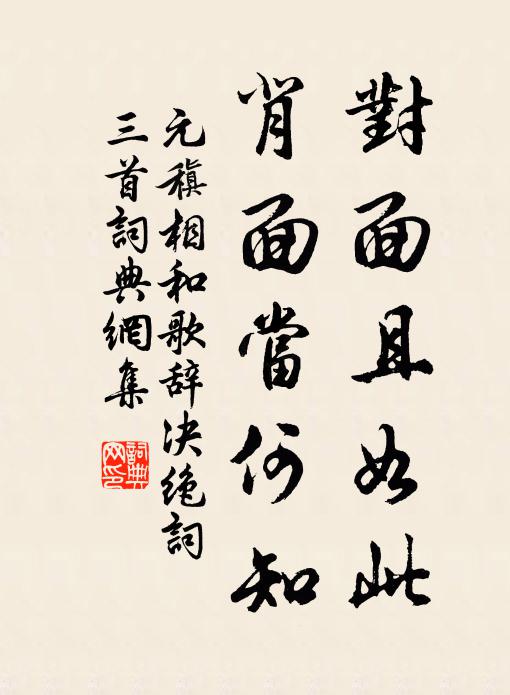 對面且如此
背面當何知
元稹相和歌辞决绝詞
三首詞典網集
詞典
网印